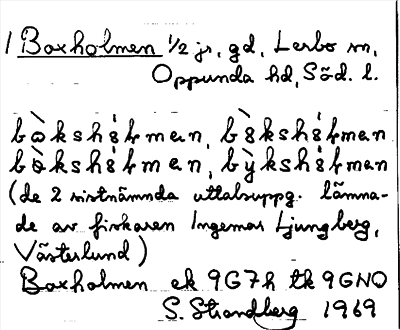 1 Boxholmen 1/2 jr, gd, Lerbo sn,
Oppunda hd, Söd. l.
(de 2 sistnämnda uttalsuppg. lämna-
de av fiskaren Ingemar Ljungberg,
Västerlund)
Boxholmen ek 9G7h tk 9GNO
S. Strandberg 1969